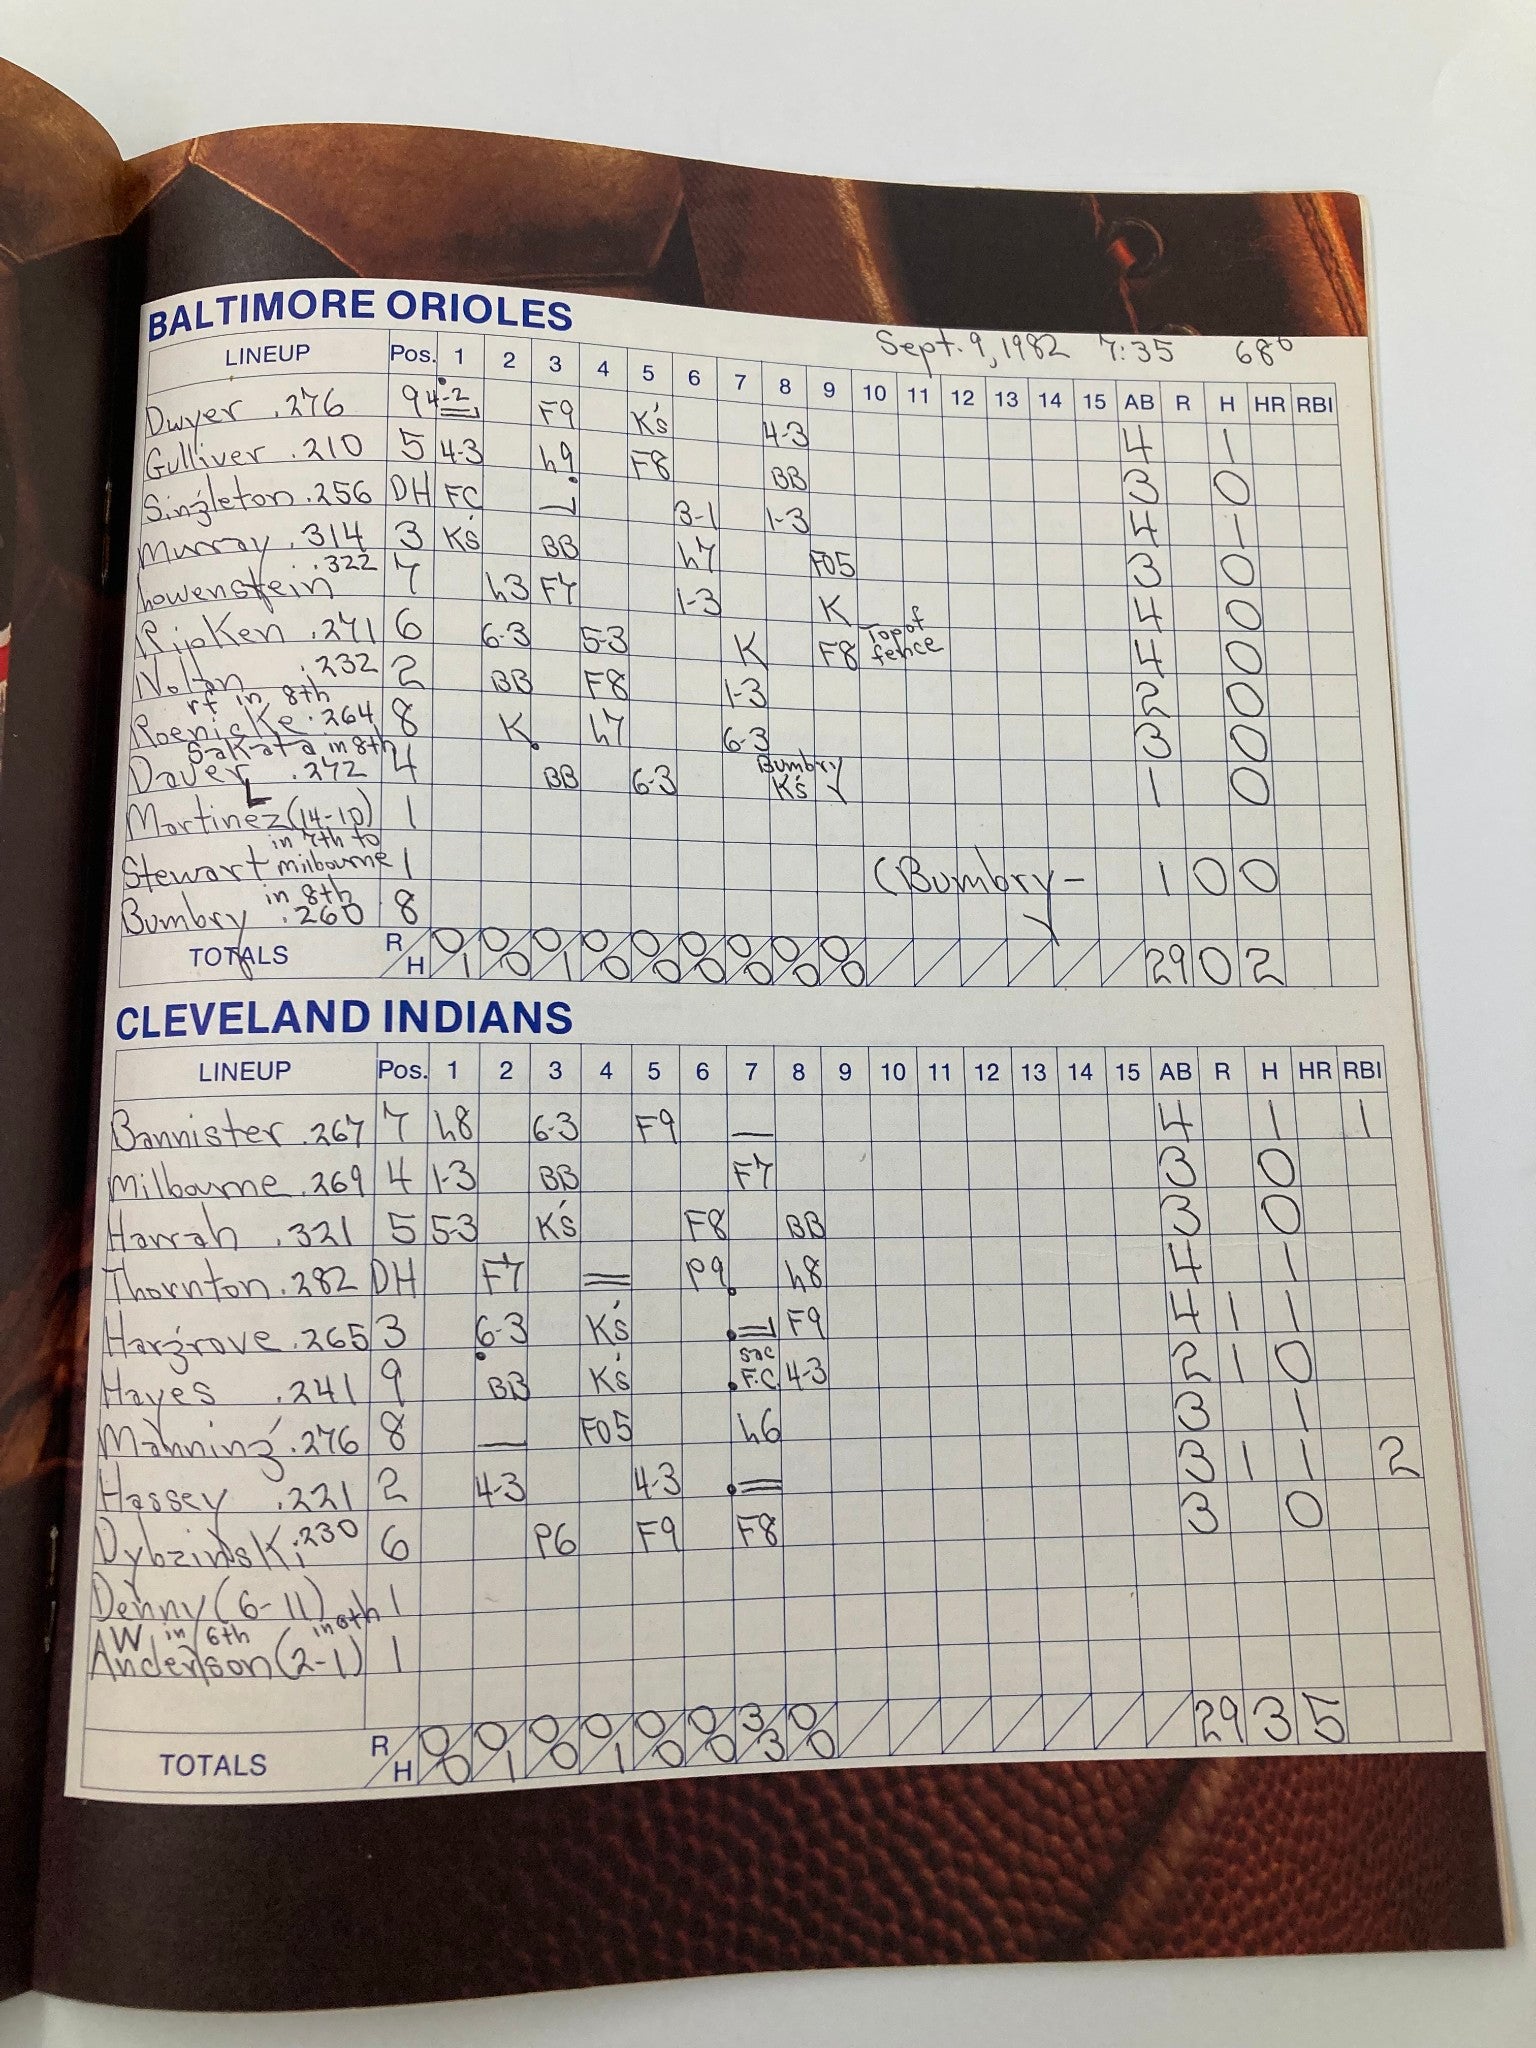 BALTIMORE ORIOLES
Sept. 9, 1982 7:35 68°
LINEUP Pos. 1 2 3 4 5 6 7 8 9 10 11 12 13 14 15 AB R H HR RBI
Dwyer .276 9 4-2 F9 K's 4-3 4 1
Gulliver .210 5 4-3 h9 F8 BB 3 0
Singleton .256 DH FC — 3-1 1-3 4 1
Murray .314 3 K's BB h7 FO5 3 0
Lowenstein .322 7 h3 F7 1-3 K 4 0
Ripken .271 6 6-3 5-3 K F8 Top of fence 4 0
Nolan .232 2 BB F8 1-3 2 0
rf in 8th
Roenicke .264 8 K h7 6-3 3 0
Sakata in 8th
Dauer .272 4 BB 6-3 Bumbry K's 1 0
L
Martinez (14-10) 1
in 7th to
Stewart Milbourne 1 (Bumbry - 1 0 0
in 8th
Bumbry .260 8
TOTALS R/H 0/1 0/0 0/1 0/0 0/0 0/0 0/0 0/0 0/0 29 0 2
CLEVELAND INDIANS
LINEUP Pos. 1 2 3 4 5 6 7 8 9 10 11 12 13 14 15 AB R H HR RBI
Bannister .267 7 h8 6-3 F9 — 4 1 1
Milbourne .269 4 1-3 BB F7 3 0
Harrah .321 5 5-3 K's F8 BB 3 0
Thornton .282 DH F7 = P9 h8 4 1
Hargrove .265 3 6-3 K's = F9 4 1 1
Hayes .241 9 BB K's sac F.C. 4-3 2 1 0
Manning .276 8 — FO5 h6 3 1
Hassey .221 2 4-3 4-3 = 3 1 1 2
Dybzinski .230 6 P6 F9 F8 3 0
Denny (6-11) 1
W, in 6th in 6th
Anderson (2-1) 1
TOTALS R/H 0/0 0/1 0/0 0/1 0/0 0/0 3/3 0/0 29 3 5